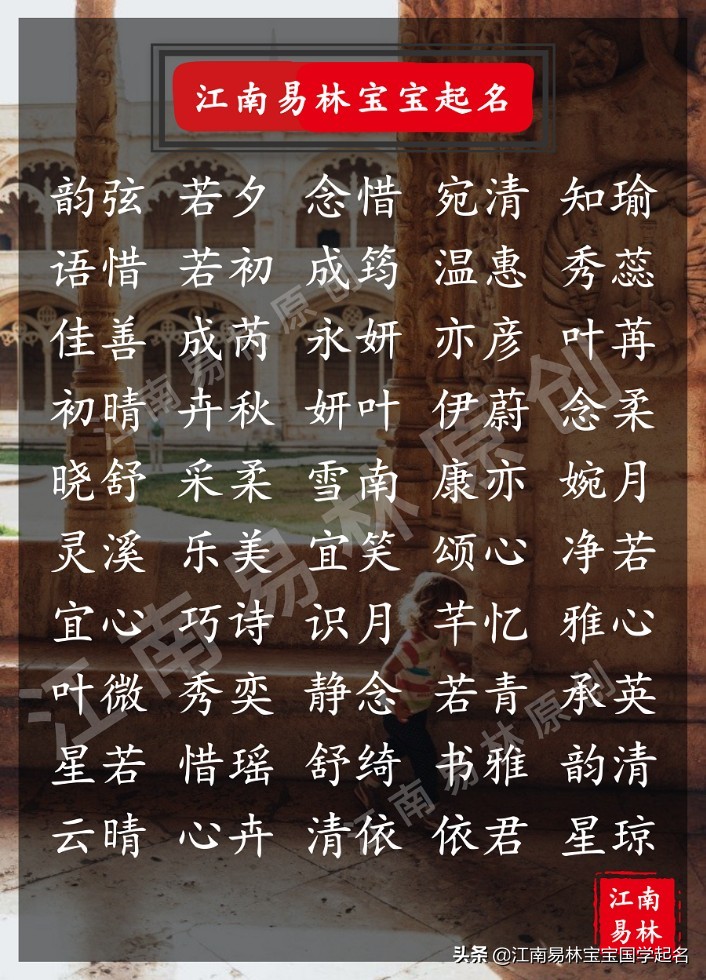 江南易林宝宝起名
韵弦 若夕 念惜 宛清 知瑜
语惜 若初 成筠 温惠 秀蕊
佳善 成芮 永妍 亦彦 叶苒
初晴 卉秋 妍叶 伊蔚 念柔
晓舒 采柔 雪南 康亦 婉月
灵溪 乐美 宜笑 颂心 净若
宜心 巧诗 识月 芊忆 雅心
叶微 秀奕 静念 若青 承英
星若 惜瑶 舒绮 书雅 韵清
云晴 心卉 清依 依君 星琼
江南易林原创
江南易林原创
江南易林原创
江南
易林
头条 @江南易林宝宝国学起名